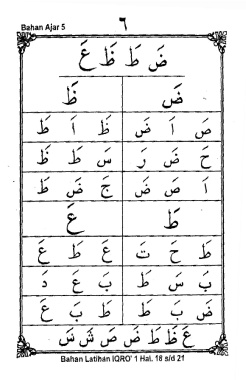 Bahan Ajar 5
٦
ضَ طَ ظَ عَ
ضَ ظَ
صَ اَ ضَ ظَ اَ طَ
حَ ضَ رَ سَ طَ ظَ
اَ صَ ضَ جَ ضَ طَ
طَ عَ
طَ حَ تَ عَ طَ عَ
بَ سَ طَ بَ عَ دَ
ضَ بَ طَ طَ بَ عَ
سَ شَ صَ ضَ طَ ظَ عَ
Bahan Latihan IQRO' 1 Hal. 18 s/d 21